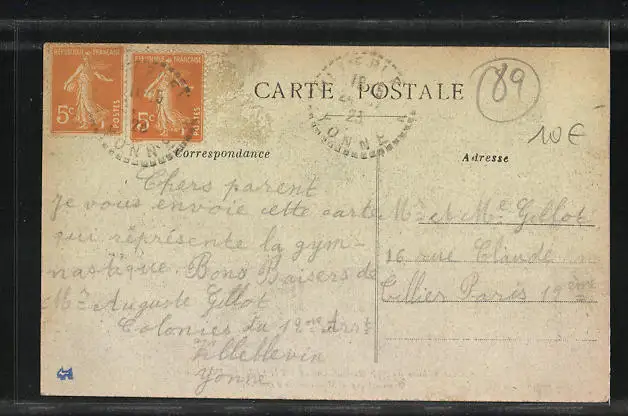 RÉPUBLIQUE FRANÇAISE
5c
POSTES
RÉPUBLIQUE FRANÇAISE
5c
POSTES
CARTE POSTALE
89
10€
23
YONNE
Correspondance
Adresse
Chers parent
Je vous envoie cette carte
qui représente la gym-
nastique. Bons Baisers de
Mr Auguste Gillot
Colonies du 12me Arrt
Villethierry
Yonne
Mr et Me Gillot
16 rue Claude
Tillier Paris 12ème